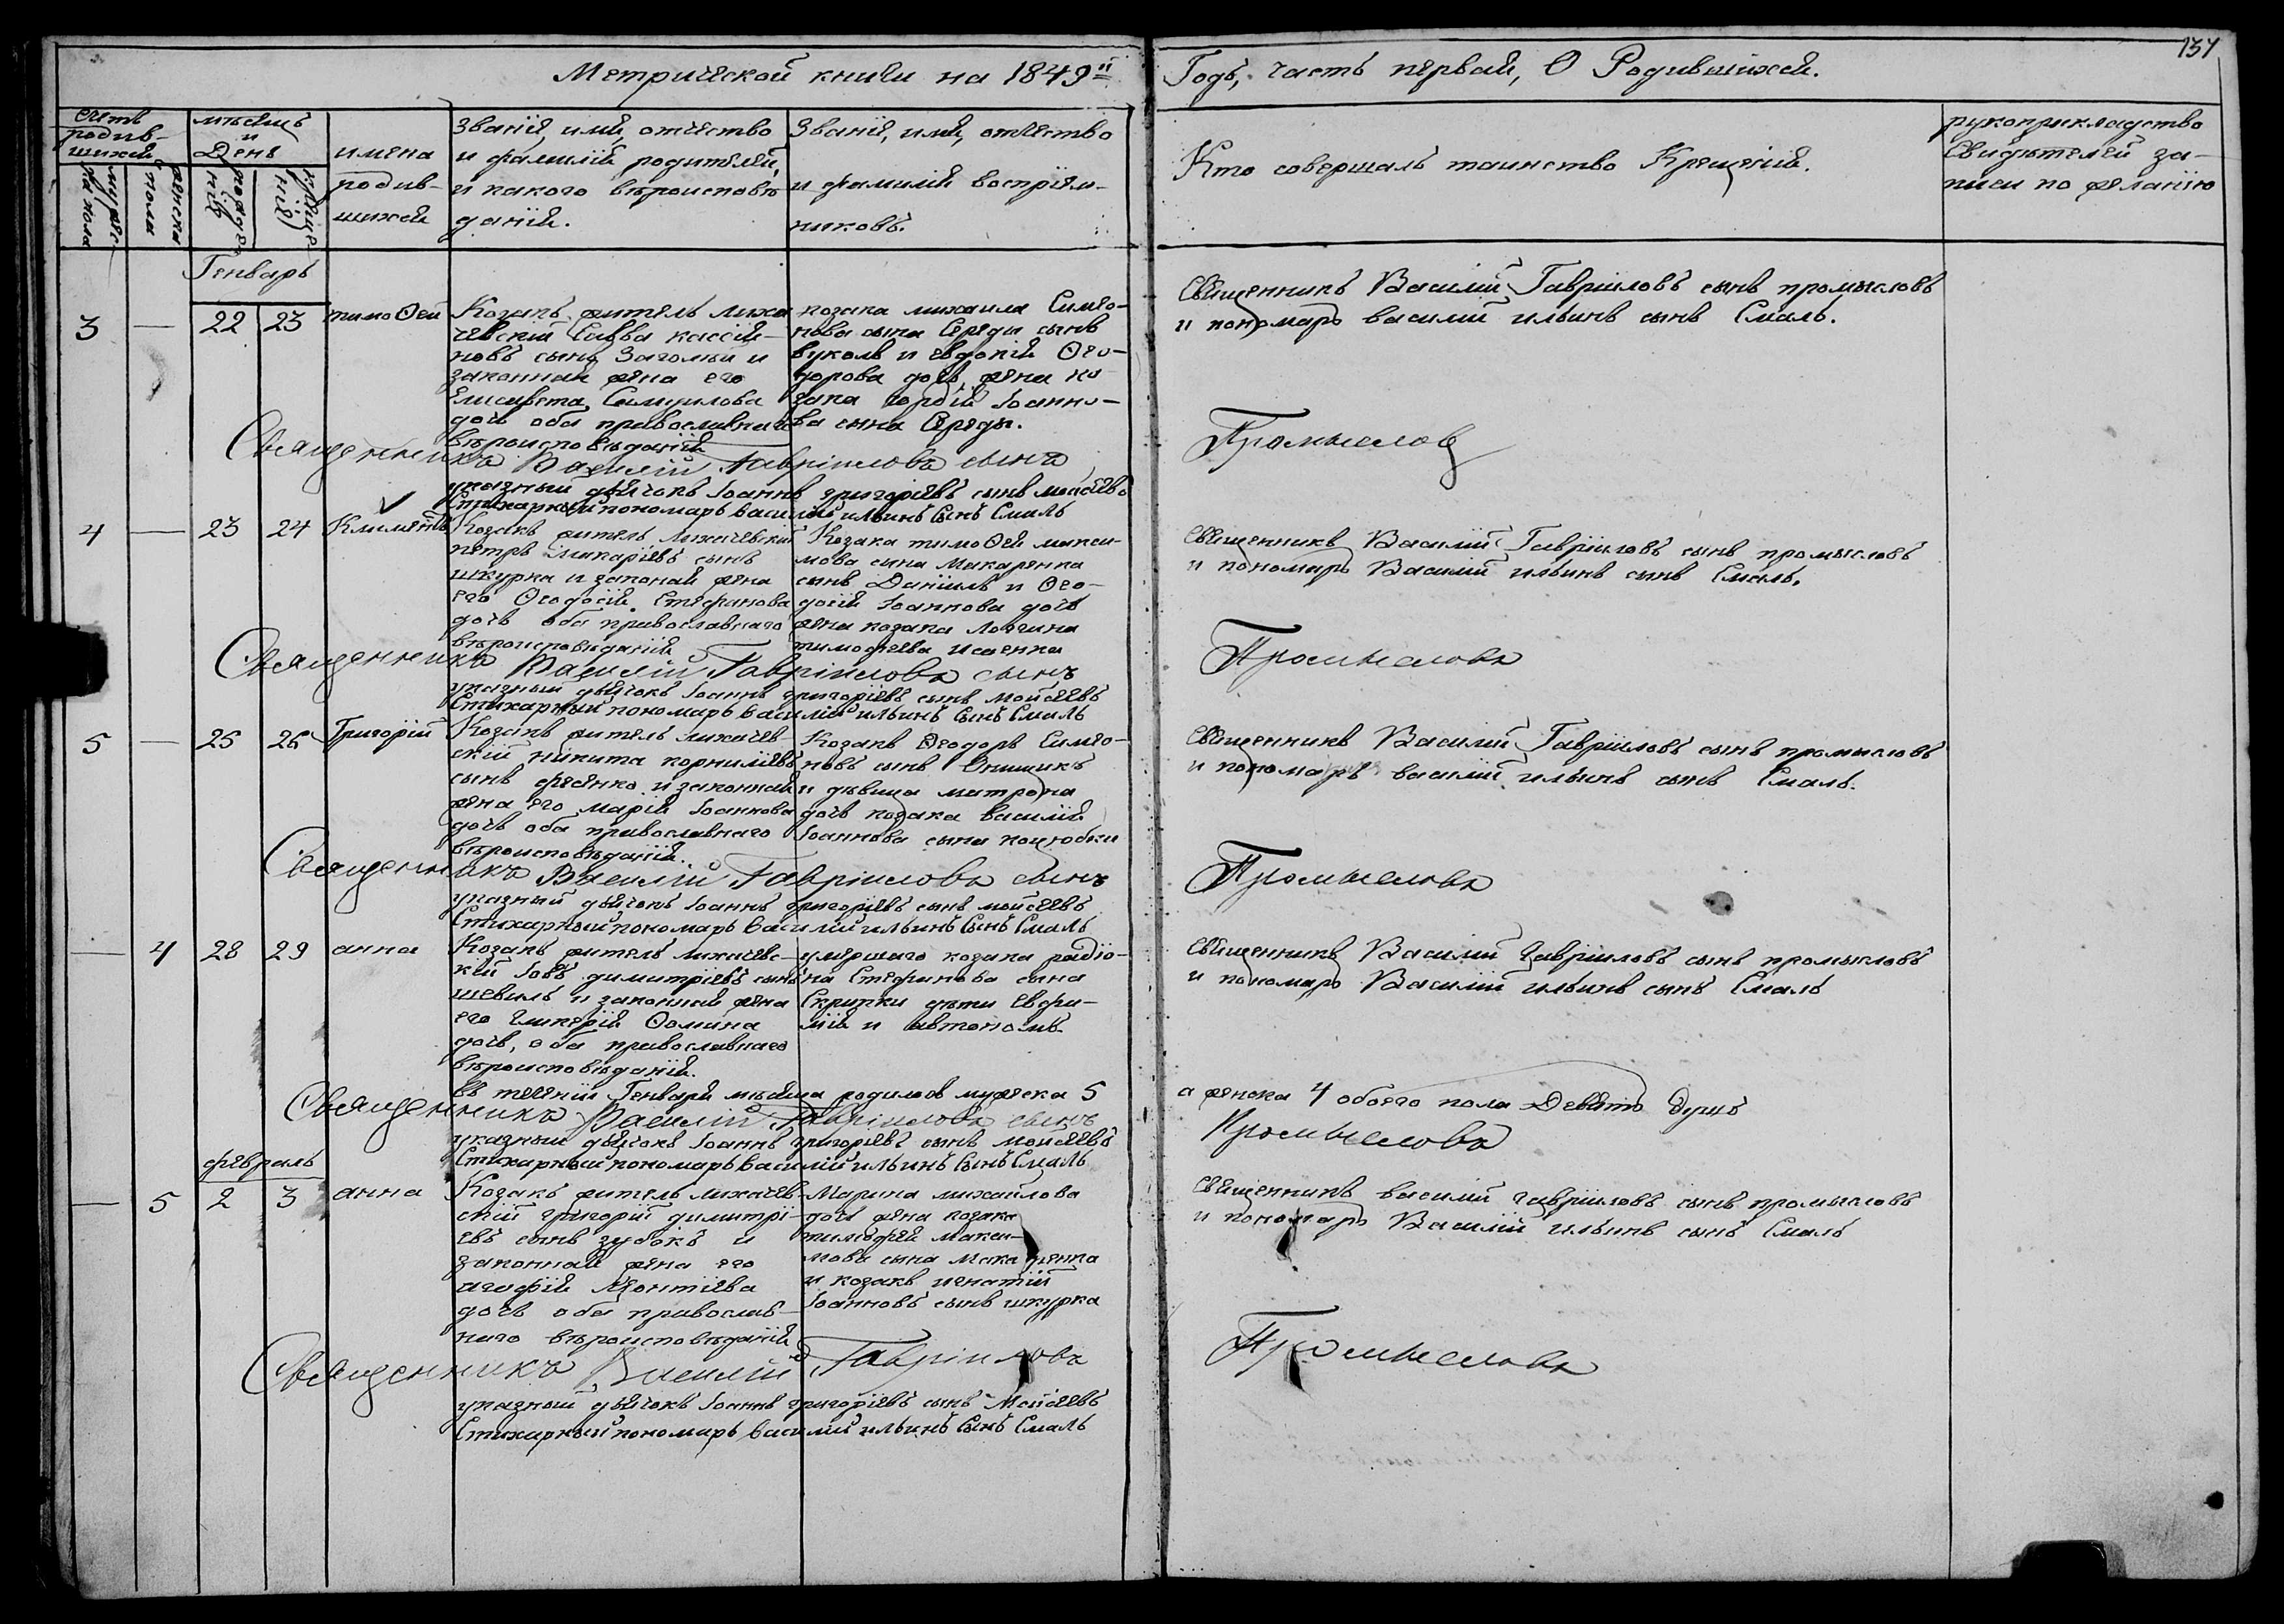 Метрической книги на 1849й
Годъ, часть первая, О Родившихся.
137
счетъ родив-шихся
мужеска пола
женска пола
месяцъ и День
рожденія
крещенія
имена родив-шихся
Званіе, имя, отчество
и фамилія родителей,
и какого вероисповѣ
данія.
Званіе, имя, отчество
и фамилія воспріем-
никовъ.
Кто совершалъ таинство Крещенія.
рукоприкладство
Свидѣтелей за-
писи по желанію
Генварь
3 — 22 23 тимоѲей
Козакъ житель лиха
чевскій Савва кассія-
новъ сынъ Загольй и
законная жена его
Елисавета Самуилова
дочь оба православнаго
вѣроисповѣданія
козака михаила Симео-
нова сына Середы сынъ
вуколъ и евдокія Ѳео-
дорова дочь, жена ко
зака гордія Іоанно-
ва сына Середы.
Священникъ Василій Гавріиловъ сынъ промысловъ
и пономарь василій ильинъ сынъ Смаль.
Священникъ Василій Гавріиловъ сынъ Промысловъ
указный дьячокъ Іоаннъ григоріевъ сынъ моисеевъ
Стихарный пономарь василій ильинъ Сынъ Смаль
4 — 23 24 Климентъ
Козакъ житель Лихачевскій
петръ макаріевъ сынъ
шкурка и законая жена
его Ѳеодосія Стефанова
дочь оба православнаго
вѣроисповѣданія
Козака тимоѲея макси-
мова сина Макаренка
сынъ Даніилъ и Ѳео-
досія Іоаннова дочь
жена козака Логгина
тимофеева исаенка
Священникъ Василій Гавріиловъ сынъ промысловъ
и пономарь Василій ильинъ сынъ Смаль.
Священникъ Василій Гавріиловъ сынъ Промысловъ
указный дьячокъ Іоаннъ григоріевъ сынъ моисеевъ
Стихарный пономарь василій ильинъ Сынъ Смаль
5 — 25 26 Григорій
Козакъ житель лихачев-
скій никита корниліевъ
сынъ фесенко и законная
жена его марія Іоаннова
дочь оба православнаго
вѣроисповѣданія.
Козакъ Ѳеодоръ Симео-
новъ сынъ Онищикъ
и дѣвица матрона
дочь козака василія
Іоаннова сына коцюбки
Священникъ Василій Гавріиловъ сынъ промысловъ
и пономарь василій ильинъ сынъ Смаль.
Священникъ Василій Гавріиловъ сынъ Промысловъ
указный дьячокъ Іоаннъ григоріевъ сынъ моисеевъ
Стихарный пономарь василій ильинъ Сынъ Смаль
— 4 28 29 анна
Козакъ житель лихачевс-
кій Іовъ димитріевъ сынъ
шевиль и законная жена
его гликерія Ѳомина
дочь, оба православнаго
вѣроисповѣданія.
умершаго козака радіо-
на Стефанова сина
Скрипки дѣти Евфи-
мія и автономъ.
Священникъ Василій Гавріиловъ сынъ промысловъ
и пономарь Василій ильинъ сынъ Смаль
Въ теченіи Генваря мѣсяца родилось мужеска 5
а женска 4 обоего пола Девять душъ
Священникъ Василій Гавріиловъ сынъ Промысловъ
указный дьячокъ Іоаннъ григоріевъ сынъ моисеевъ
Стихарный пономарь василій ильинъ Сынъ Смаль
февраль
— 5 2 3 анна
Козакъ житель лихачев-
скій григорій димитрі-
евъ сынъ зубокъ и
законная жена его
агафія Леонтіева
дочь оба православ-
наго вѣроисповѣданія
Марина михайлова
дочь жена козака
тимофея макси-
мова сына макаренка
и козакъ игнатій
Іоанновъ сынъ шкурка
Священникъ василій гавріиловъ сынъ промысловъ
и пономарь Василій ильинъ сынъ Смаль
Священникъ Василій Гавріиловъ Промысловъ
указный дьячокъ Іоаннъ григоріевъ сынъ Моисеевъ
Стихарный пономарь василій ильинъ Сынъ Смаль